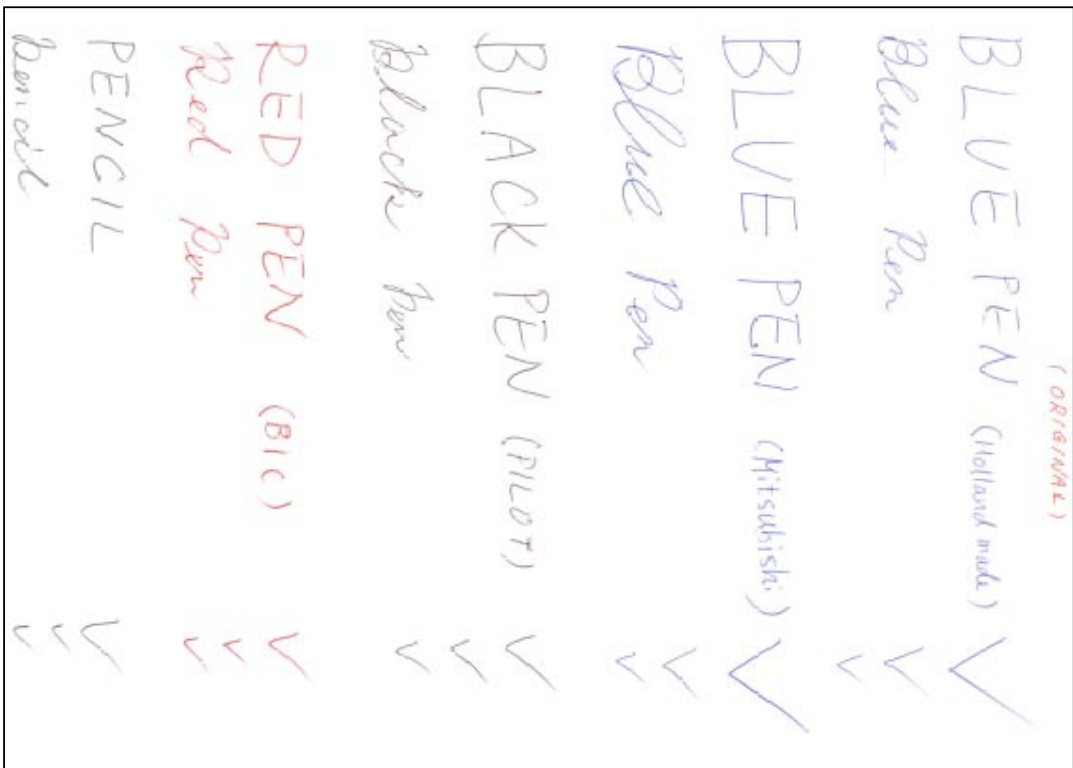 (ORIGINAL)
BLUE PEN (Holland made)
Blue Pen
BLUE PEN (Mitsubishi)
Blue Pen
BLACK PEN (PILOT)
Black Pen
RED PEN (BIC)
Red Pen
PENCIL
Pencil